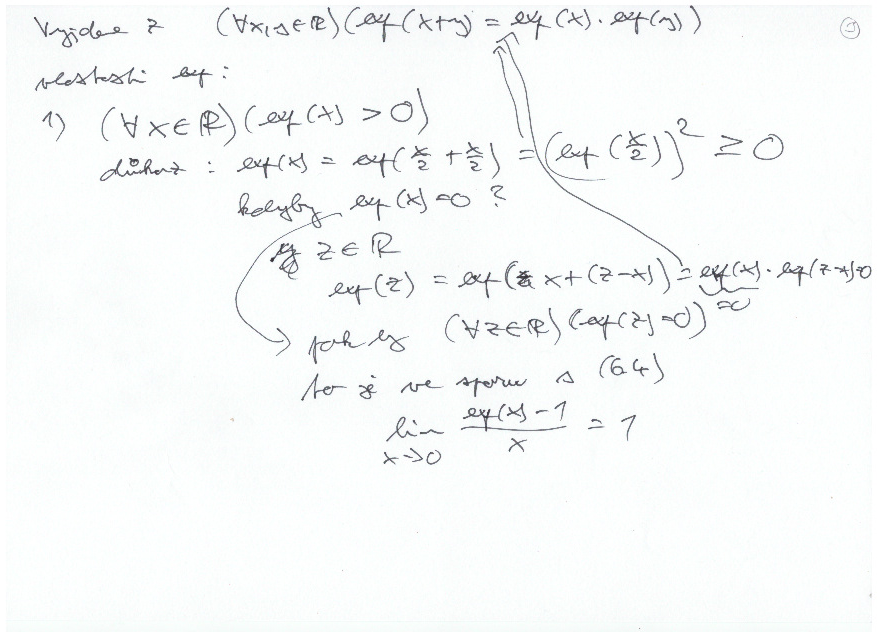 Vyjdeme z (∀x,y∈ℝ)(exp(x+y) = exp(x)·exp(y))
vlastnosti exp:
1) (∀x∈ℝ)(exp(x) > 0)
důkaz: exp(x) = exp(x/2 + x/2) = (exp(x/2))² ≥ 0
kdyby exp(x)=0 ?
z∈ℝ
exp(z) = exp(x+(z-x)) = exp(x)·exp(z-x)=0
=0
pak by (∀z∈ℝ)(exp(z)=0)
to je ve sporu s (64)
lim x→0 (exp(x)-1)/x = 1